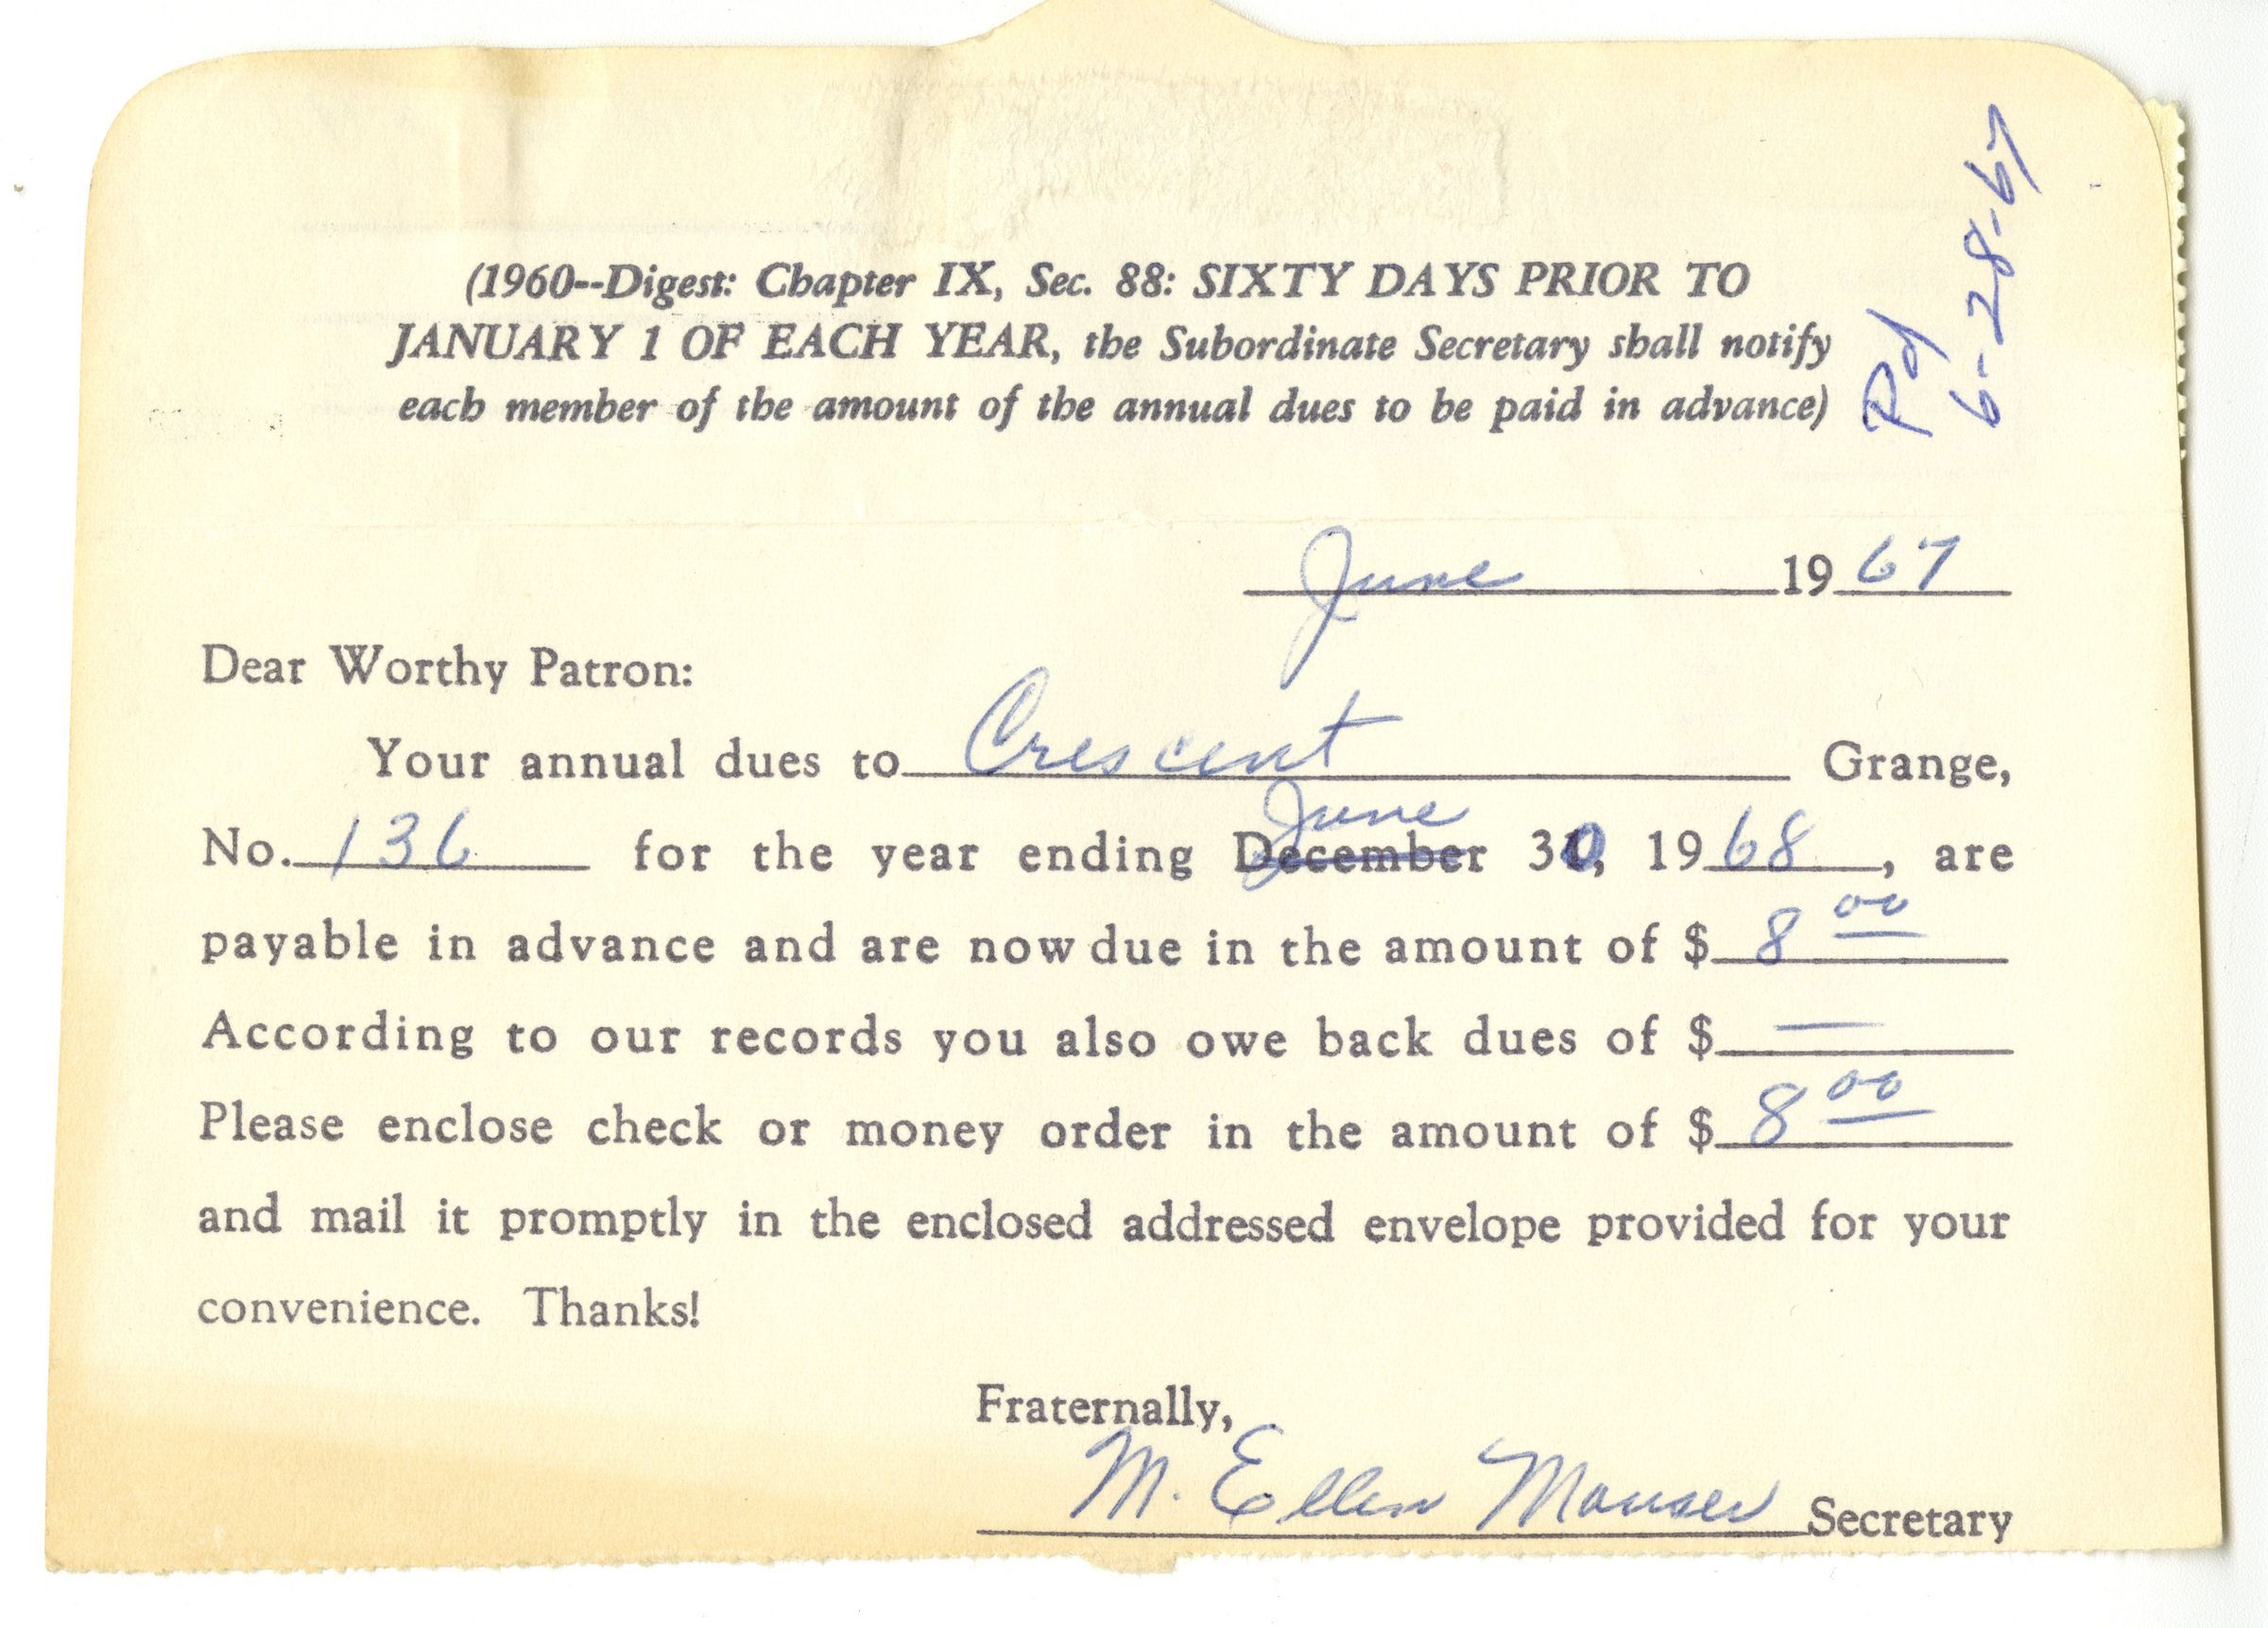 (1960--Digest: Chapter IX, Sec. 88: SIXTY DAYS PRIOR TO
JANUARY 1 OF EACH YEAR, the Subordinate Secretary shall notify
each member of the amount of the annual dues to be paid in advance)
Pd
6-28-67
June 1967
Dear Worthy Patron:
Your annual dues to Crescent Grange,
June
No. 136 for the year ending December 30, 1968, are
payable in advance and are now due in the amount of $ 8 00
According to our records you also owe back dues of $ —
Please enclose check or money order in the amount of $ 8 00
and mail it promptly in the enclosed addressed envelope provided for your
convenience. Thanks!
Fraternally,
M. Ellen Mouser Secretary